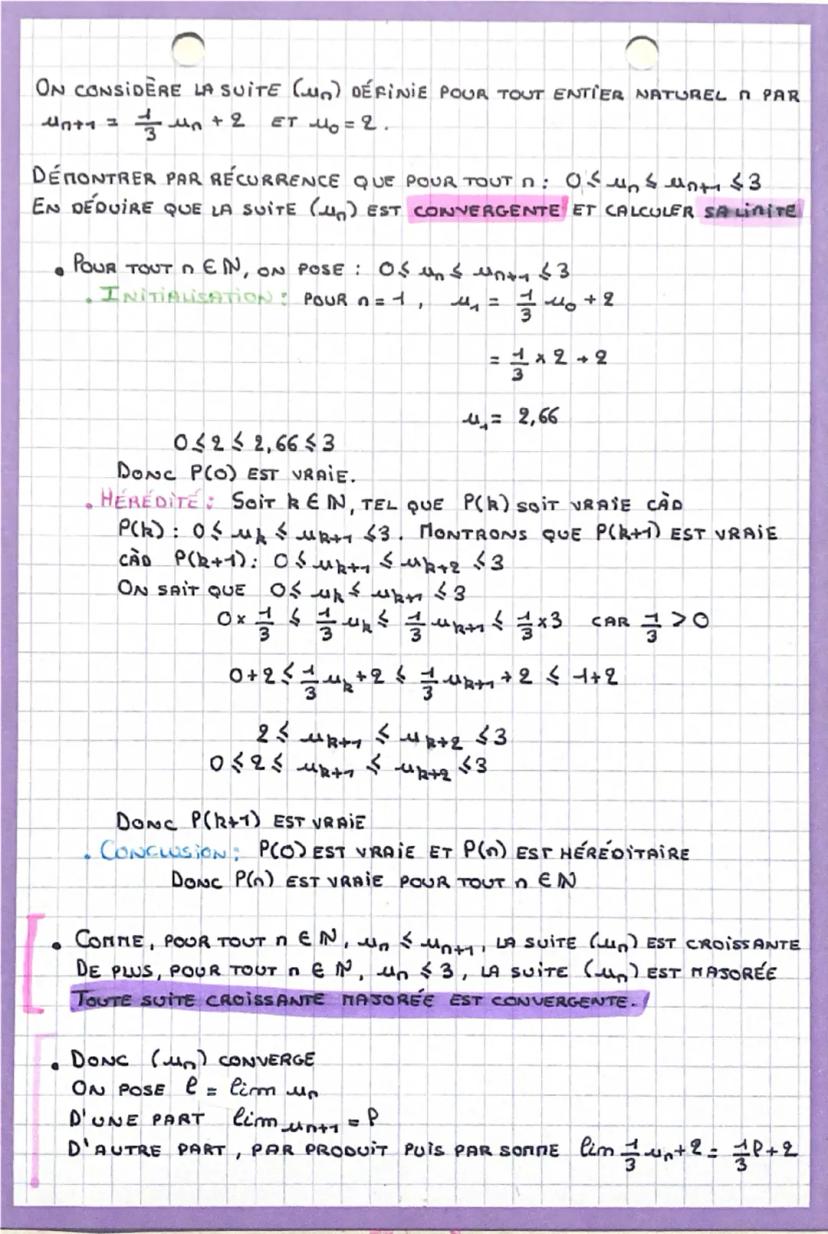 ON CONSIDÈRE LA SUITE (uₙ) DÉFINIE POUR TOUT ENTIER NATUREL n PAR
uₙ₊₁ = 1/3 uₙ + 2 ET u₀ = 2.
DÉMONTRER PAR RÉCURRENCE QUE POUR TOUT n : 0 ≤ uₙ ≤ uₙ₊₁ ≤ 3
EN DÉDUIRE QUE LA SUITE (uₙ) EST CONVERGENTE ET CALCULER SA LIMITE
• POUR TOUT n ∈ ℕ, ON POSE : 0 ≤ uₙ ≤ uₙ₊₁ ≤ 3
. INITIALISATION : POUR n = 1, u₁ = 1/3 u₀ + 2
= 1/3 × 2 + 2
u₁ = 2,66
0 ≤ 2 ≤ 2,66 ≤ 3
DONC P(0) EST VRAIE.
. HÉRÉDITÉ : SOIT k ∈ ℕ, TEL QUE P(k) SOIT VRAIE CÀD
P(k) : 0 ≤ uₖ ≤ uₖ₊₁ ≤ 3. MONTRONS QUE P(k+1) EST VRAIE
CÀD P(k+1) : 0 ≤ uₖ₊₁ ≤ uₖ₊₂ ≤ 3
ON SAIT QUE 0 ≤ uₖ ≤ uₖ₊₁ ≤ 3
0 × 1/3 ≤ 1/3 uₖ ≤ 1/3 uₖ₊₁ ≤ 1/3 × 3 CAR 1/3 > 0
0 + 2 ≤ 1/3 uₖ + 2 ≤ 1/3 uₖ₊₁ + 2 ≤ 1 + 2
2 ≤ uₖ₊₁ ≤ uₖ₊₂ ≤ 3
0 ≤ 2 ≤ uₖ₊₁ ≤ uₖ₊₂ ≤ 3
DONC P(k+1) EST VRAIE
. CONCLUSION : P(0) EST VRAIE ET P(n) EST HÉRÉDITAIRE
DONC P(n) EST VRAIE POUR TOUT n ∈ ℕ
• COMME, POUR TOUT n ∈ ℕ, uₙ ≤ uₙ₊₁, LA SUITE (uₙ) EST CROISSANTE
DE PLUS, POUR TOUT n ∈ ℕ, uₙ ≤ 3, LA SUITE (uₙ) EST MAJORÉE
TOUTE SUITE CROISSANTE MAJORÉE EST CONVERGENTE.
• DONC (uₙ) CONVERGE
ON POSE ℓ = lim uₙ
D'UNE PART lim uₙ₊₁ = ℓ
D'AUTRE PART, PAR PRODUIT PUIS PAR SOMME lim 1/3 uₙ + 2 = 1/3 ℓ + 2